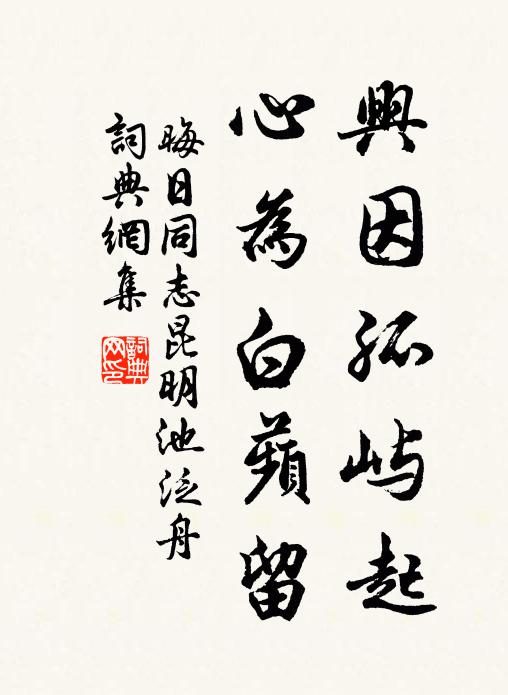 興因孤屿起
心為白蘋留
晦日同志昆明池泛舟
詞典網集
詞典
网印